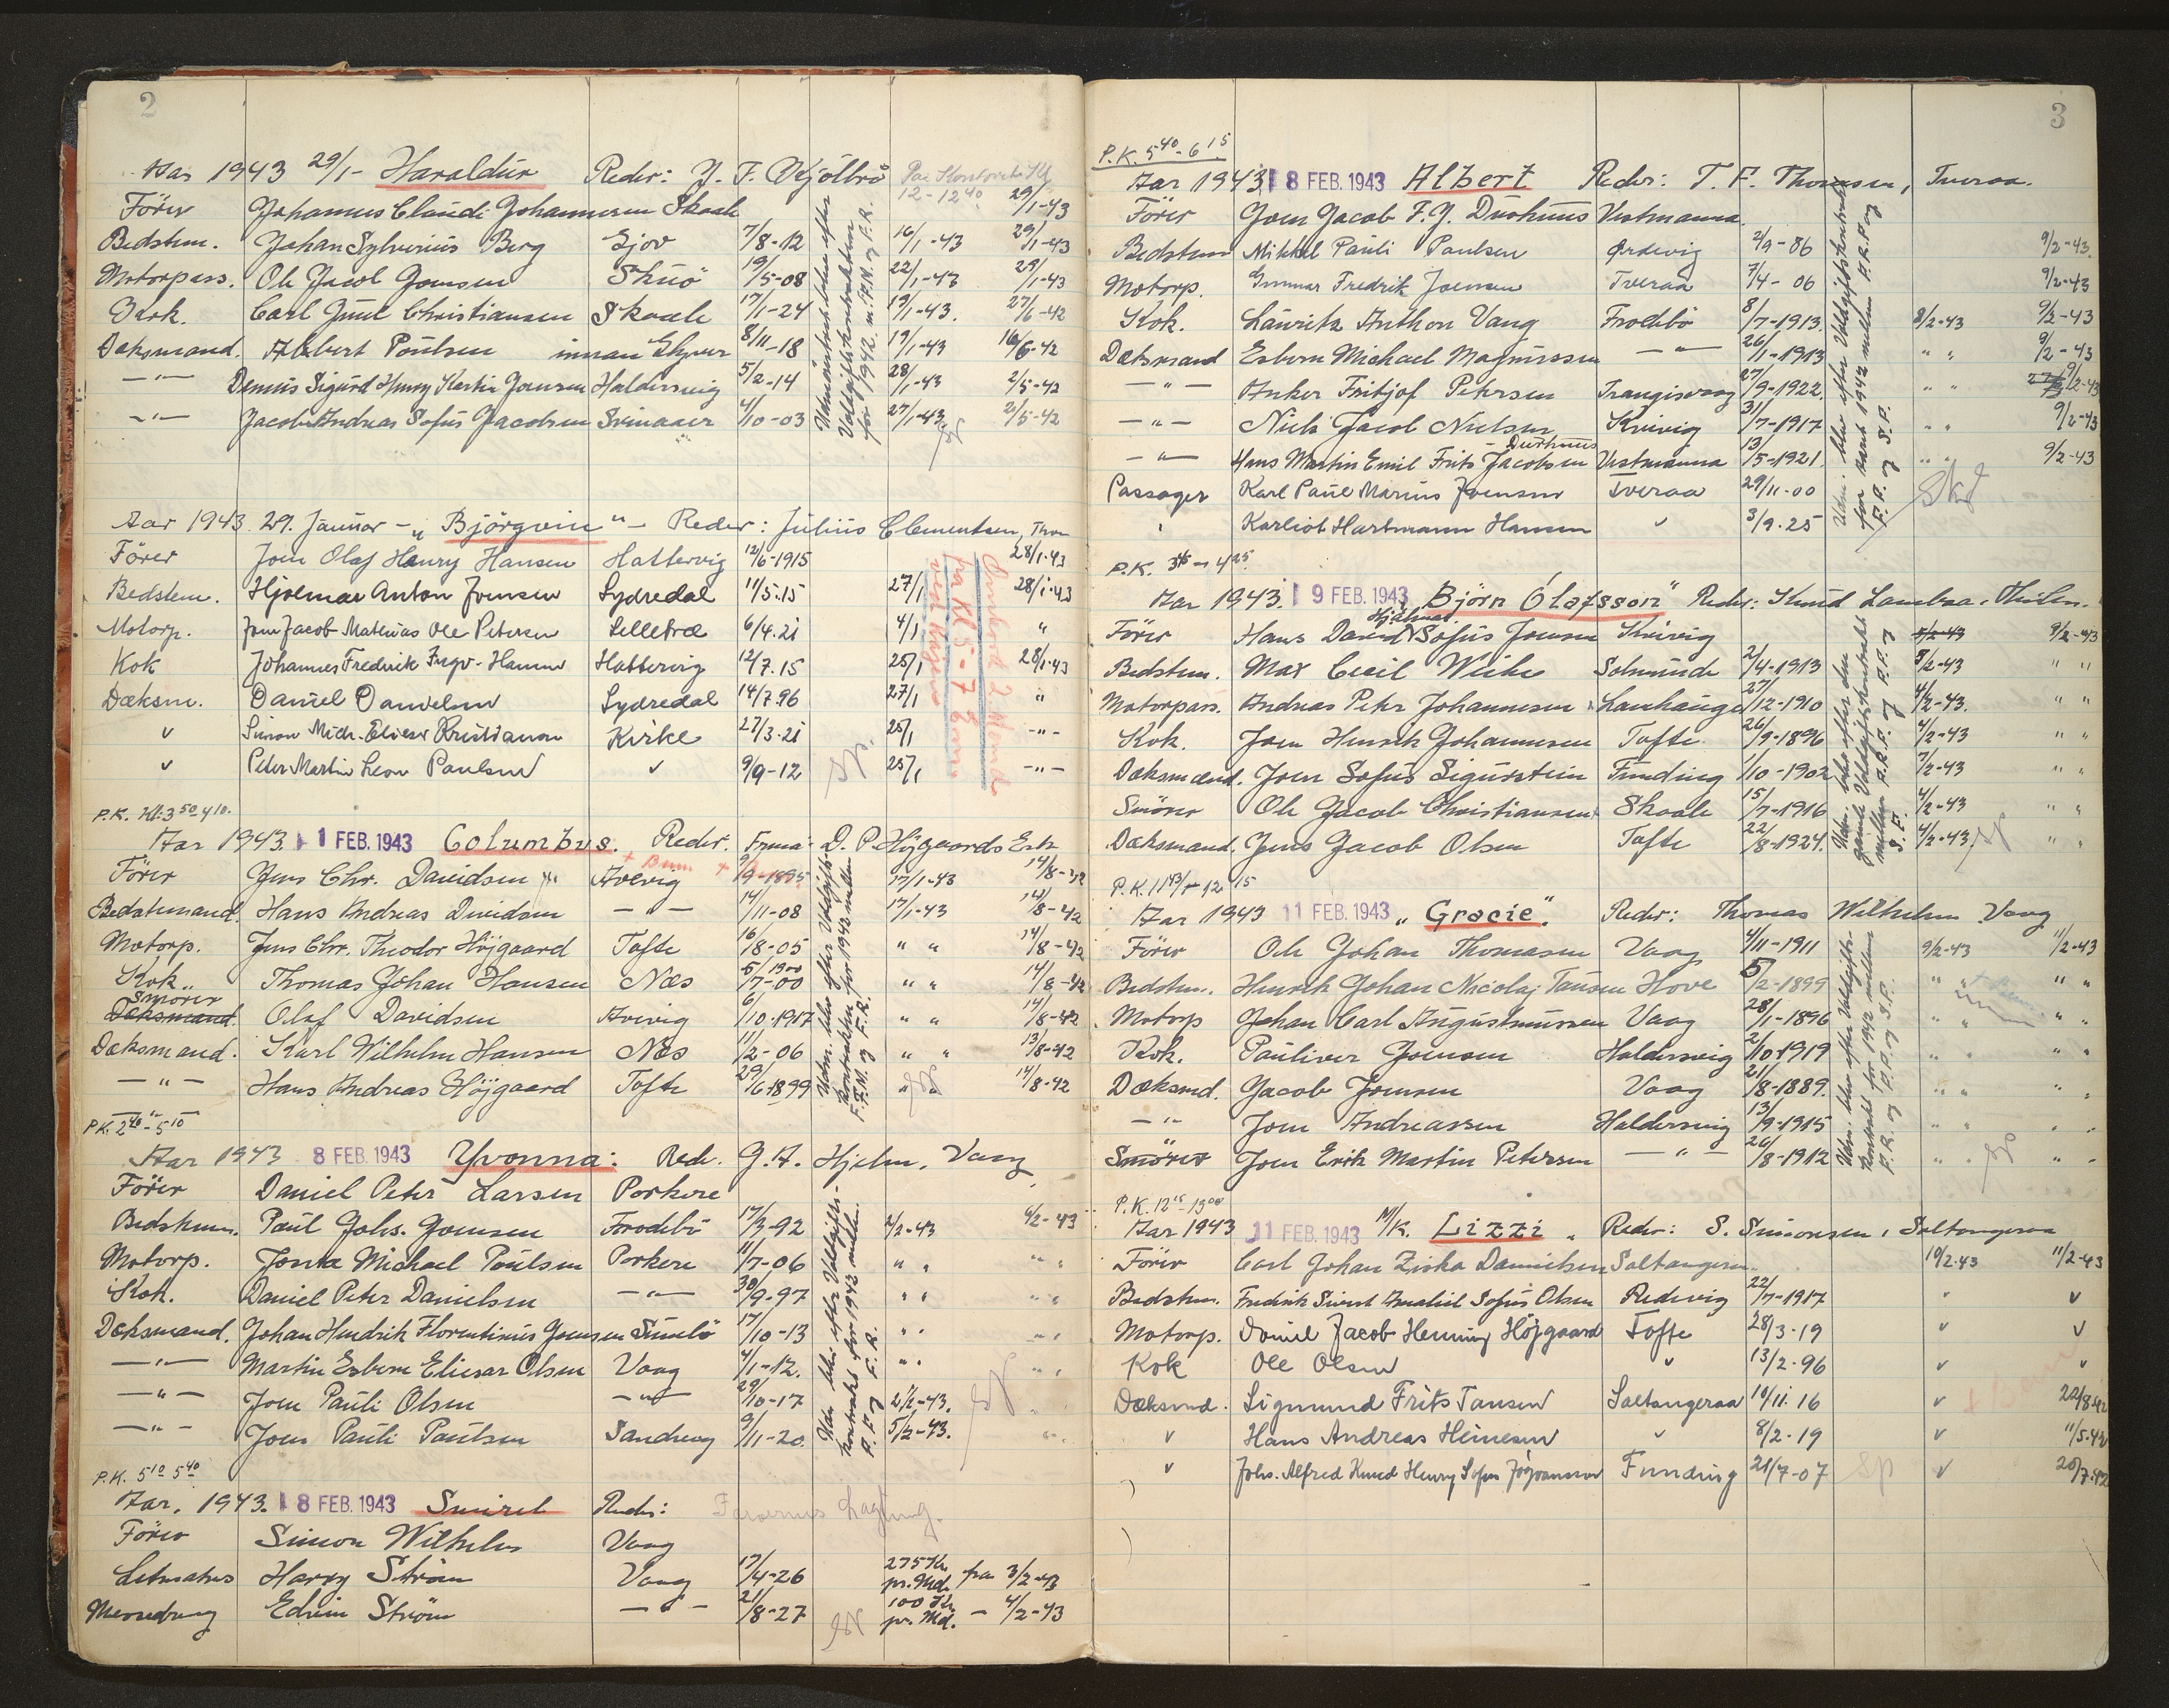 2
Aar 1943 29/1- Haraldur Reder: J. F. Kjölbro Paa Kontoret Kl 12-12 40
Förer Johannes Claudi Johannesen Skaale 29/1-43
Bedstem. Johan Sylverius Berg Gjov 7/8-12 16/1-43 29/1-43
Motorpass. Ole Jacob Joensen Skuö 19/5-08 22/1-43 29/1-43
Carl Juul Christiansen Skaale 17/1-24 19/1-43. 27/6-42
Daksmand. Albert Poulsen 8/11-18 19/1-43 16/6-42
-"- Dennis Sigurd Henry Joensen Haldersvig 5/2-14 28/1-43 2/5-42
-"- Jacob Andreas Sofus Jacobsen Svinaaer 4/10-03 27/1-43 2/5-42
Udmönstret blev efter Voldgiftskontrakten for 1942. m. F.M. og F.R.
Aar 1943. 29. Januar - "Björgvin" - Reder: Julius Clementsen, Thon
Förer Joen Olaf Henry Hansen Hattervig 12/6-1915 28/1-43
Bedstem. Hjalmar Anton Joensen Sydredal 11/5.15 27/1 28/1-43
Motorp. Joen Jacob Mathias Ole Petersen Selletræ 6/4.21 4/1 "
Kok Johannes Fredrik Ingv. Hansen Hattervig 12/7.15 25/1 28/1-43
Dæksm. Daniel Danielsen Sydredal 14/7.96 27/1 "
v Simon Mich. Elieser Kristiansen Kirke 27/3.21 25/1 -"-
v Peter Martin Leon Paulsen v 9/9-12 25/1 -"-
P.K. Kl. 3 50 4 10.
Aar 1943. 1 FEB. 1943 Columbus. Reder. Firma D. P. Höjgaards Eft.
Förer Jens Chr. Davidsen Arevig 9/9-1895 17/1-43 14/8-42
Bedstemand. Hans Andreas Davidsen -"- 14/11-08 17/1-43 14/8-42
Motorp. Jens Chr. Theodor Höjgaard Tofte 16/8-05 " " 14/8-42
Kok. Thomas Johan Hansen Næs 5/7-00 1900 " " 14/8-42
Smörer Dæksmand Olaf Davidsen Arevig 6/10-1917 " " 14/8-42
Dæksmand. Karl Wilhelm Hansen Næs 11/2-06 " " 13/8-42
-"- Hans Andreas Höjgaard Tofte 29/6-1899 " " 14/8-42
Udm. blev efter Voldgifts-kontrakten for 1942 mellem F.M. og F.R.
P.K. 2 40 - 5 10
Aar 1943 8 FEB. 1943 Yvonna: Reder. J. H. Hjelm, Vaag
Förer Daniel Peter Larsen Porkere
Bedstem. Paul Johs. Joensen Frodebö 17/3-92 2/2-43 6/2-43
Motorp. Jonæ Michael Poulsen Porkere 11/7-06 " " " "
Kok. Daniel Peter Danielsen -"- 30/9-97 " " " "
Dæksmand. Johan Hendrik Florentinus Joensen Sumbö 17/10-13 " " " "
-"- Martin Esbern Eliesar Olsen Vaag 4/1-12. " " " "
-"- Joen Pauli Olsen -"- 29/10-17 2/2-43. "
-"- Joen Pauli Poulsen Sandvig 9/11-20 5/2-43. " "
Udm. blev efter Voldgifts-kontrakt for 1942 mellem P.F. og F.R.
P.K. 5 10 5 40
Aar. 1943. 8 FEB. 1943 Smiril Reder: Færoernes Lagting.
Förer Simon Wilhelm Vaag
Letmatros Harry Ström Vaag 17/4-26 275 Kr. pr. Md. fra 3/2-43
Messedreng Edvin Ström -"- 21/8-27 100 Kr. pr. Md. - 4/2-43
3
P.K. 5 40 - 6 15
Aar 1943 8 FEB. 1943 Albert Reder: T. F. Thomsen, Tveraa.
Förer Joen Jacob F. J. Durhuus Vestmanna
Bedstem Mikkel Pauli Paulsen Ördevig 2/9-86 9/2-43.
Motorp. Gunnar Fredrik Joensen Tveraa 7/4-06 9/2-43
Kok. Lauritz Anthon Vang Frodebö 8/7-1913. 8/2-43 9/2-43
Dæksmand Esbern Michael Magnussen -"- 26/1-1913 " " 9/2-43
-"- Anker Fritjof Petersen Trangisvaag 27/9-1922. " " 9/2-43
-"- Niels Jacob Nielsen Kvivig 31/7-1917 " " 9/2-43
-"- Hans Martin Emil Frits Jacobsen Durhuus Vestmanna 13/5-1921. " " 9/2-43
Passager Karl Paul Marius Joensen Tveraa 29/11-00
" Karliot Hartmann Hansen v 3/9.25
P.K. 3 45 - 4 25
Aar 1943. 9 FEB. 1943 "Björn Ólafsson" Reder: Knud Lambaa,
Förer Hans David Hjalmar Sofus Joensen Kvivig 5/2-43 9/2-43
Bedstem. Max Cecil Weihe Solmunde 2/4-1913 8/2-43 " "
Motorpass. Andreas Peter Johannesen Lamhauge 27/12-1910 4/2-43. " "
Kok. Joen Henrik Johannesen Tofte 26/9-1896 4/2-43 " "
Dæksmand. Joen Sofus Sigurstein Funding 1/10-1902 7/2-43 " "
Smörer Ole Jacob Christiansen Skaale 15/7-1916 4/2-43 " "
Dæksmand. Jens Jacob Olsen Tofte 22/8-1924. 4/2-43 " "
P.K. 11 43 - 12 15
Aar 1943 11 FEB. 1943 "Gracie". Reder: Thomas Wilhelm Vaag
Förer Ole Johan Thomasen Vaag 4/11-1911 9/2-43 11/2-43
Bedstem. Henrik Johan Nicolaj Tausen Hove 5/2-1899 " " " "
Motorp Johan Carl Augustinussen Vaag 28/1-1896 " " " "
Kok. Pauliver Joensen Haldersvig 2/10-1919 " " " "
Dæksmd. Jacob Joensen Vaag 21/8-1889. " " "
-"- Joen Andreassen Haldersvig 13/9-1915 " " " "
Smörer Joen Erik Martin Petersen -"- 26/8-1912 " " " "
P.K. 12 15 - 13 00
Aar 1943 11 FEB. 1943 M/K. Lizzi " Reder: S. Simonsen, Saltangeraa
Förer Carl Johan Ziska Danielsen Saltangeraa. 10/2.43 11/2-43
Bedstem. Fredrik Sivert Amaliel Sofus Olsen Redevig 22/7-1917 " v
Motorp. Daniel Jacob Henning Höjgaard Tofte 28/3-19 v v
Kok Ole Olsen v 13/2-96 v v
Dæksmd. Sigmund Frits Tausen Saltangeraa 10/11.16 v 22/8-42
v Hans Andreas Heinesen v 8/2-19 v 11/5-42
v Johs. Alfred Knud Henry Sofus Jógvansson Funding 21/7-07 Sp v 20/7-42